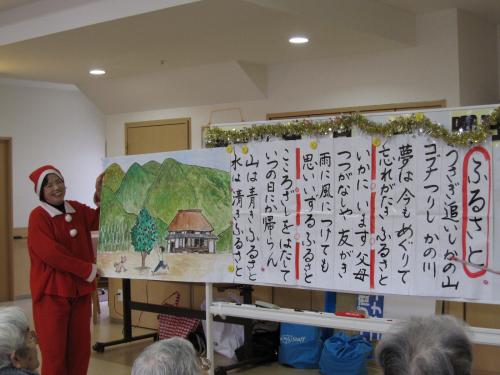 ふるさと
うさぎ追いしかの山
コブナつりし かの川
夢は今も めぐりて
忘れがたき ふるさと
いかにいます 父母
つつがなしや 友がき
雨に風につけても
思いいずるふるさと
こころざしをはたして
いつの日にか帰らん
山は青き ふるさと
水は清き ふるさと